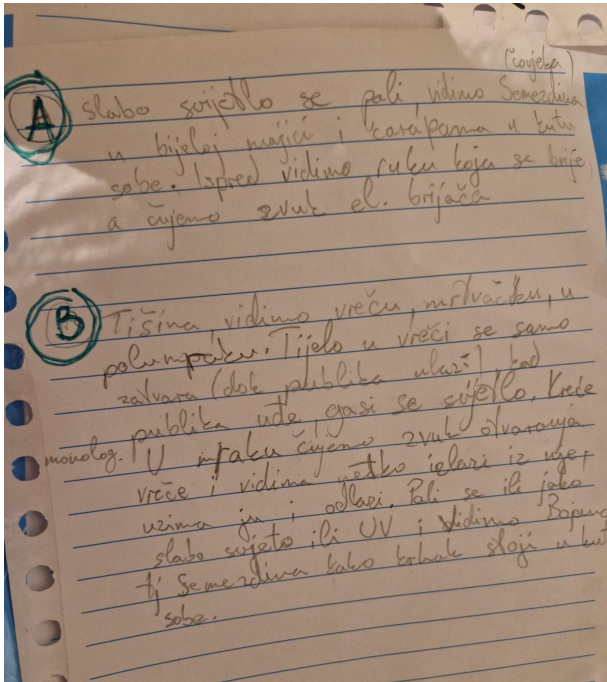 (čovjeka)
A slabo svijetlo se pali, vidimo Semezdina
u bijeloj majici i čarapama u kutu
sobe. Ispred vidimo ruku koja se brije,
a čujemo zvuk el. brijača
B Tišina, vidimo vreču, mrtvačku, u
polumraku. Tijelo u vreči se samo
zatvara (dok publika ulazi), kad
publika uđe, gasi se svijetlo. Kreće
monolog. U mraku čujemo zvuk otvaranja
vreče i vidimo netko izlazi iz nje,
uzima ju i odlazi. Pali se ili jako
slabo svjeto ili UV i vidimo
tj Semezdina kako krhak stoji u kutu
sobe.